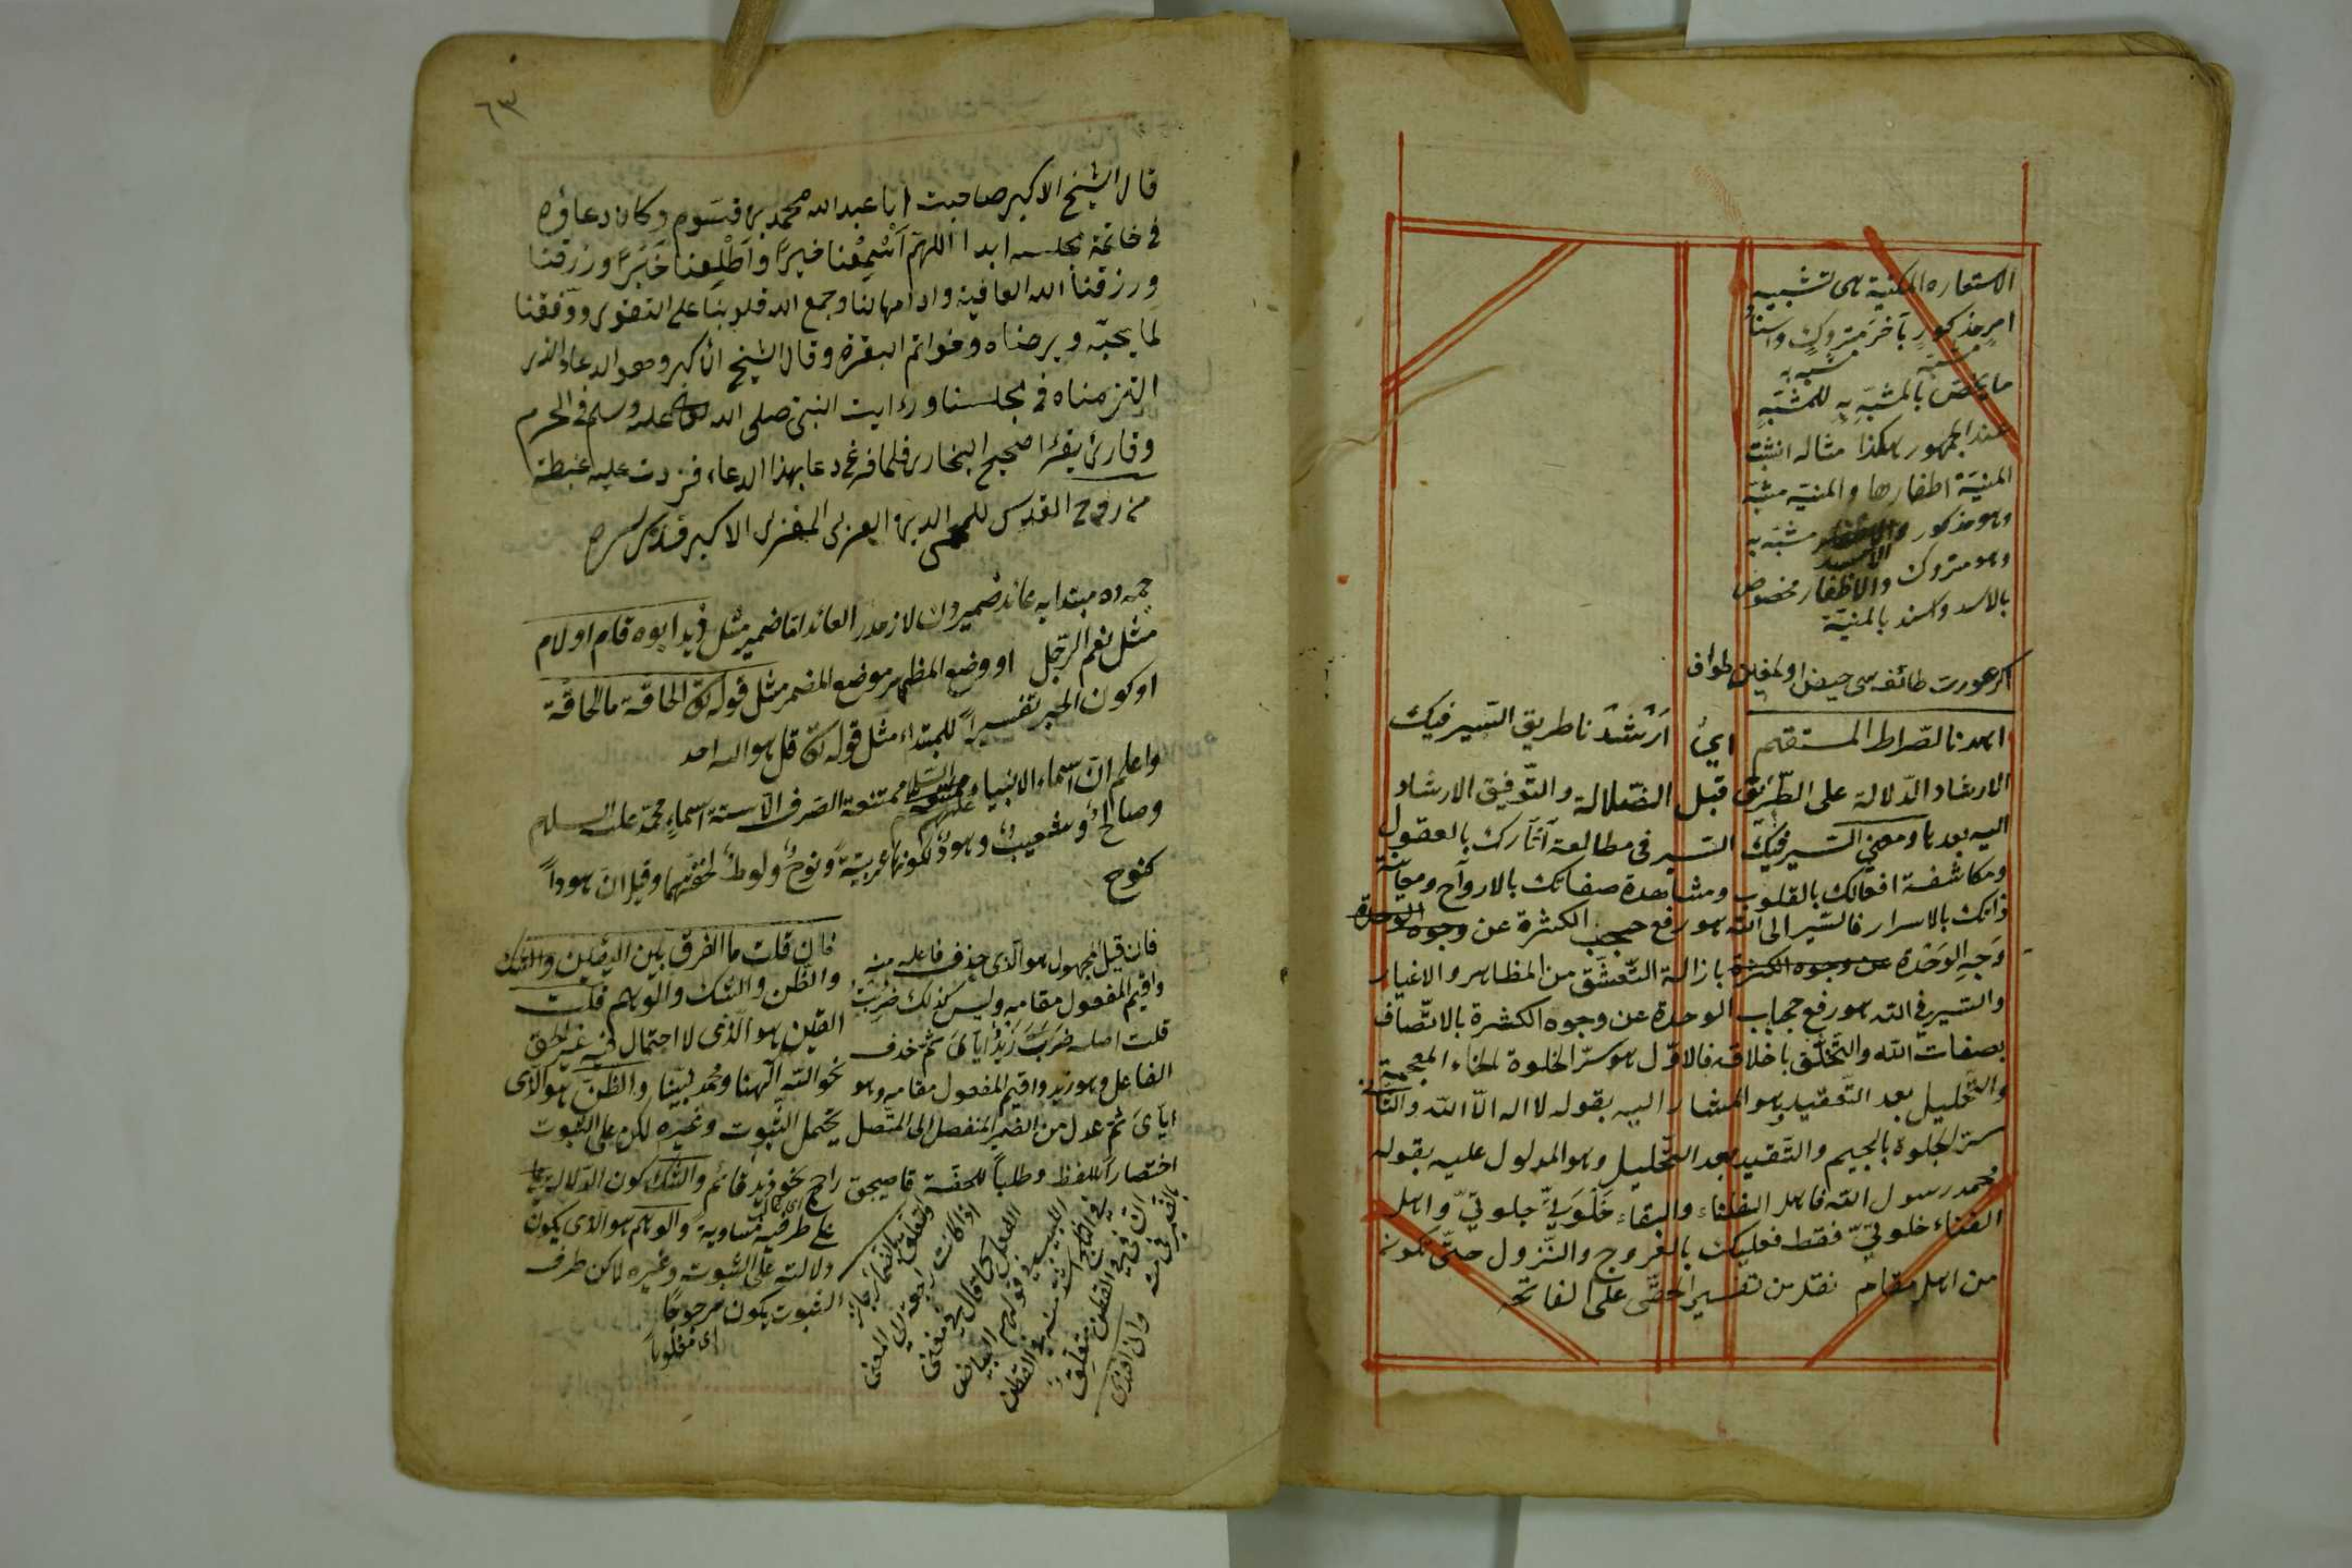 الاستعاره المكنية هى تشبيه
امرٍ مذكورٍ بآخرَ متروكٍ واسنادُ
مشبّه مشبّه به
ما يختصّ بالمشبّه بِه للمشبّهِ
عند الجمهور هكذا مثاله انشبت
المنيّة اظفارها والمنيّة مشبّه
وهو مذكور والاسد مشبّه به
وهو متروك والاظفار مخصوص
بالاسد واسند بالمنيّة
اكر عورت طائفه سى حيض اولمغين طواف
اهدنا الصّراط المستقيم اىْ اَرْشدْنا طريق السّير فيك
الارشاد الدّلالة على الطّريق قبل الضّلالة والتّوفيق الارشاد
اليه بعدها ومعنى السّير فيك السّير فى مطالعة آثارك بالعقول
ومكاشفة افعالك بالقلوب ومشاهدة صفاتك بالارواح ومعاينة
ذاتك بالاسرار فالسّير الى الله هو رفع حجب الكثرة عن وجوه الوحدة
وَجهِ الوَحْدة عن وجوه الكثرة بازالة التّعشّق من المظاهر والاغيار
والسّير فى الله هو رفع حجاب الوحدة عن وجوه الكثرة بالاتّصاف
بصفات الله والتّخلّق باخلاقه فالاوّل هو سرّ الخلوة بالخاء المعجمة
والتّحليل بعد التّعقيد وهو المشار اليه بقوله لا اله الّا الله والثّانى
سرّ الجلوة بالجيم والتّقييد بعد التّحليل وهو المدلول عليه بقوله
محمد رسول الله فاهل الفناء والبقاء خَلْوَتِىٌّ جلوتىّ واهل
الفناء خلوتىّ فقط فعليك بالعروج والنّزول حتّى تكون
من اهل مقام نقل من تفسير الحقّى على الفاتحه
٦٣
قال الشيخ الاكبر صاحبت ابا عبد الله محمد بن قسّوم وكان دعاؤه
فى خاتمة مجلسه ابدا اللهم اَسْمِعْنا خيرًا وَاَطْلِعنا خَيْرًا ورزقنا
ورزقنا الله العافية وادامها لنا وجمع الله قلوبنا على التقوى ووفّقنا
لما يحبّه ويرضاه وخواتم البقرة وقال الشيخ الاكبر وهو الدعاء الذى
التزمناه فى مجلسنا ورايت النبى صلى الله عليه وسلم فى الحرم
وقارئ يقرا صحيح البخارى فلما فرغ دعا بهذا الدعاء فزدت عليه غبطة
من روح القدس للمحيى الدين العربى المغربى الاكبر قدّس سره
جمله ده مبتدايه عائد ضمير ون لازمدر العائد امّا ضمير مثل زيد ابوه قام او لام
مثل نعم الرّجل او وضع المظهر موضع المضمر مثل قوله تعالى الحاقّة ما الحاقّة
او كون الخبر تفسيراً للمبتداء مثل قوله تعالى قل هو الله احد
واعلم انّ اسماء الانبياء عليهم السّلام ممتنعة الصّرف الّا ستة اسماءٍ محمّد عليه السلم
وصالح وشعيب وهود لكونها عربيّة ونوح ولوط لخفّتهما وقيل ان هوداً
كنوح
فان قيل مجهول هو الّذى حذف فاعله منه
واقيم المفعول مقامه وليس كذلك ضُرِبْتُ
قلت اصله ضرَبَ زَيْدٌ ايّاىَ ثمّ حذف
الفاعل وهو زيد واقيم المفعول مقامه وهو
ايّاىَ ثمّ عدل من الضّمير المنفصل الى المتّصل
اختصاراً للفظ وطلباً للخفّة
فان قلت ما الفرق بين اليقين والشك
والظّن والشك والوهم قلت
اليقين هو الّذى لا احتمال فيه غير الحق
نحو الله الهنا ومحمد نبيّنا والظنّ هو الّذى
يحتمل الثبوت وغيره لكن على الثبوت
راجح نحو زيد قائم والشك كون الدّلالة
على طرفيه مساوية والوهم هو الّذى يكون
دلالته على الثبوت وغيره لكن طرف
الثبوت يكون مرجوحًا
اى مغلوباً